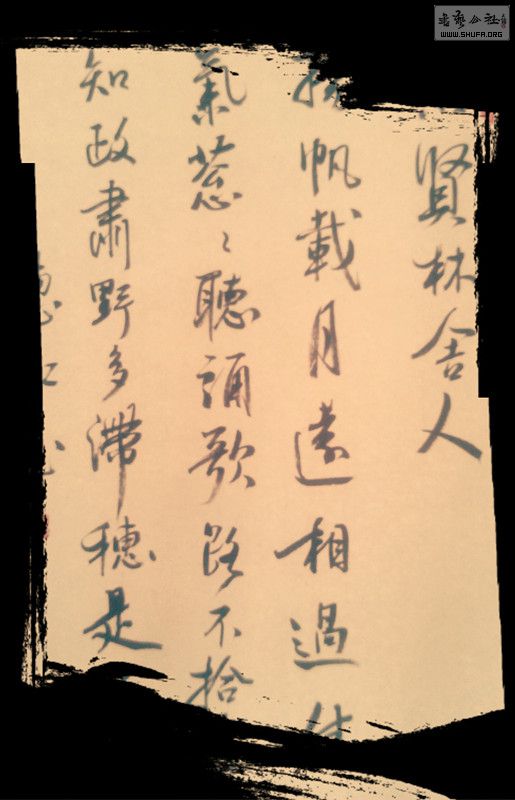 書藝公社
WWW.SHUFA.ORG
賢林舍人
帆載月遠相過佳
氣葱々聽誦歌路不拾
知政肅野多滯穗是